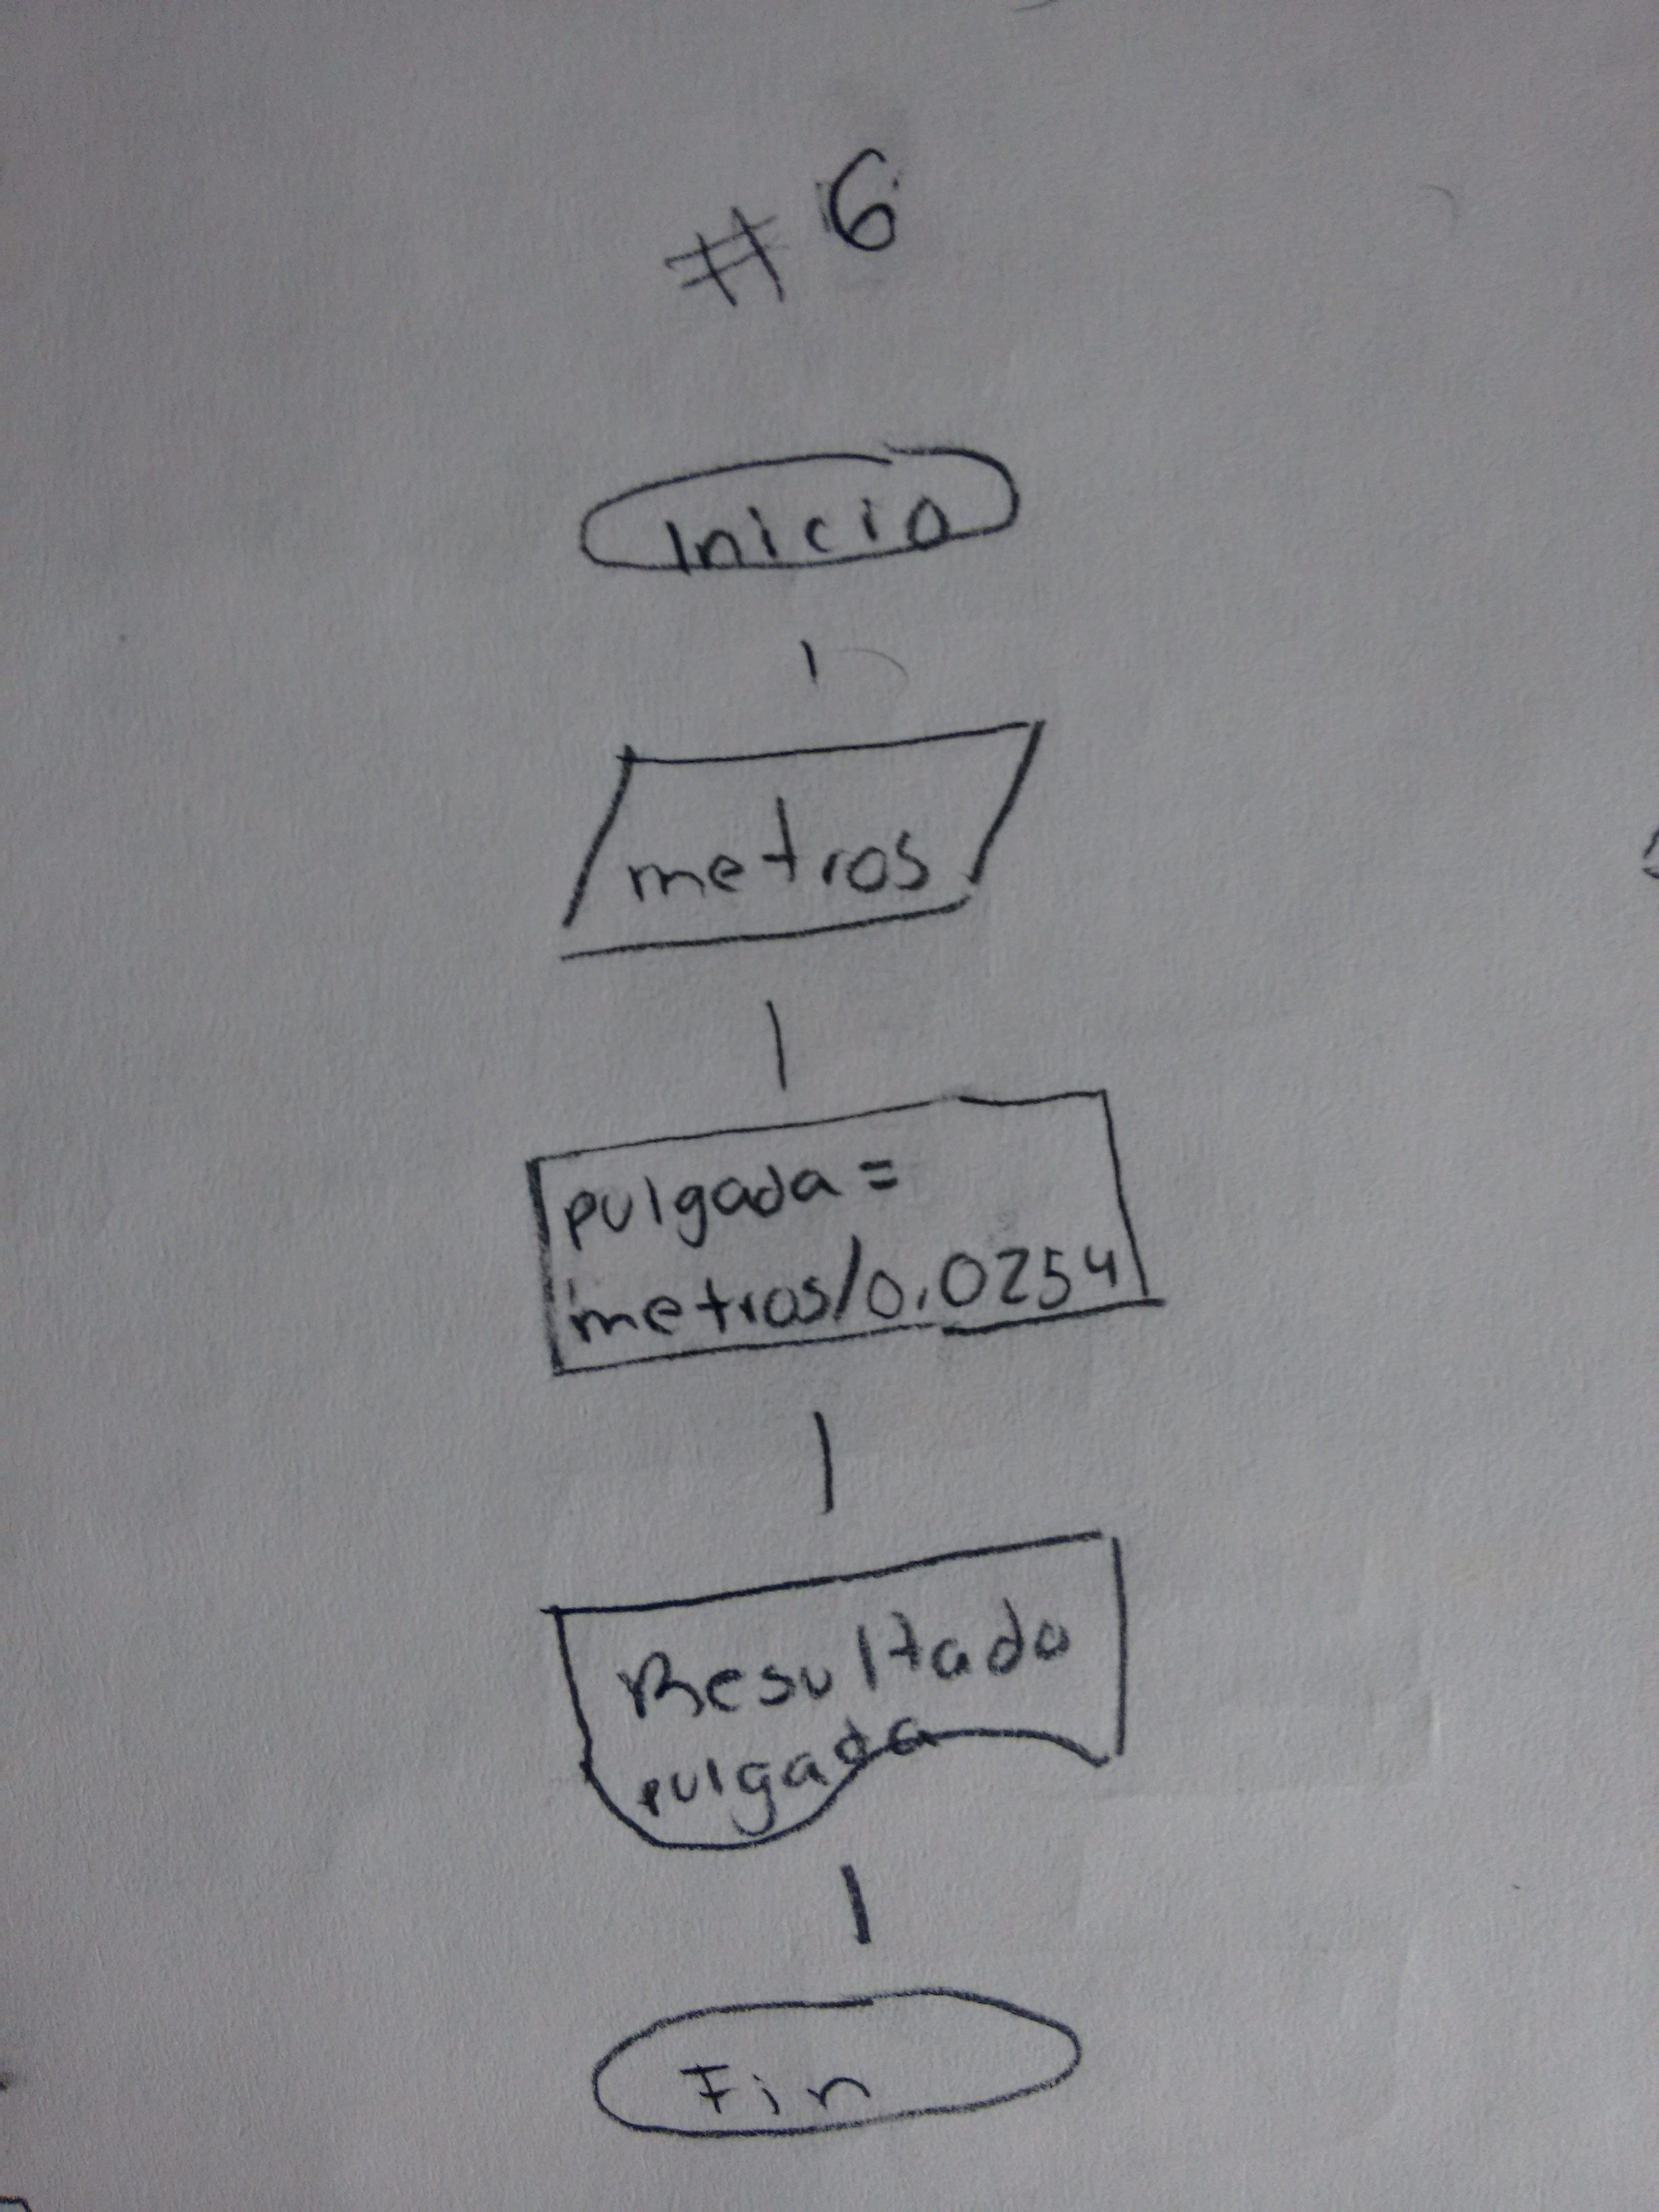 # 6
Inicio
metros
pulgada =
metros/0.0254
Resultado
pulgada
Fin